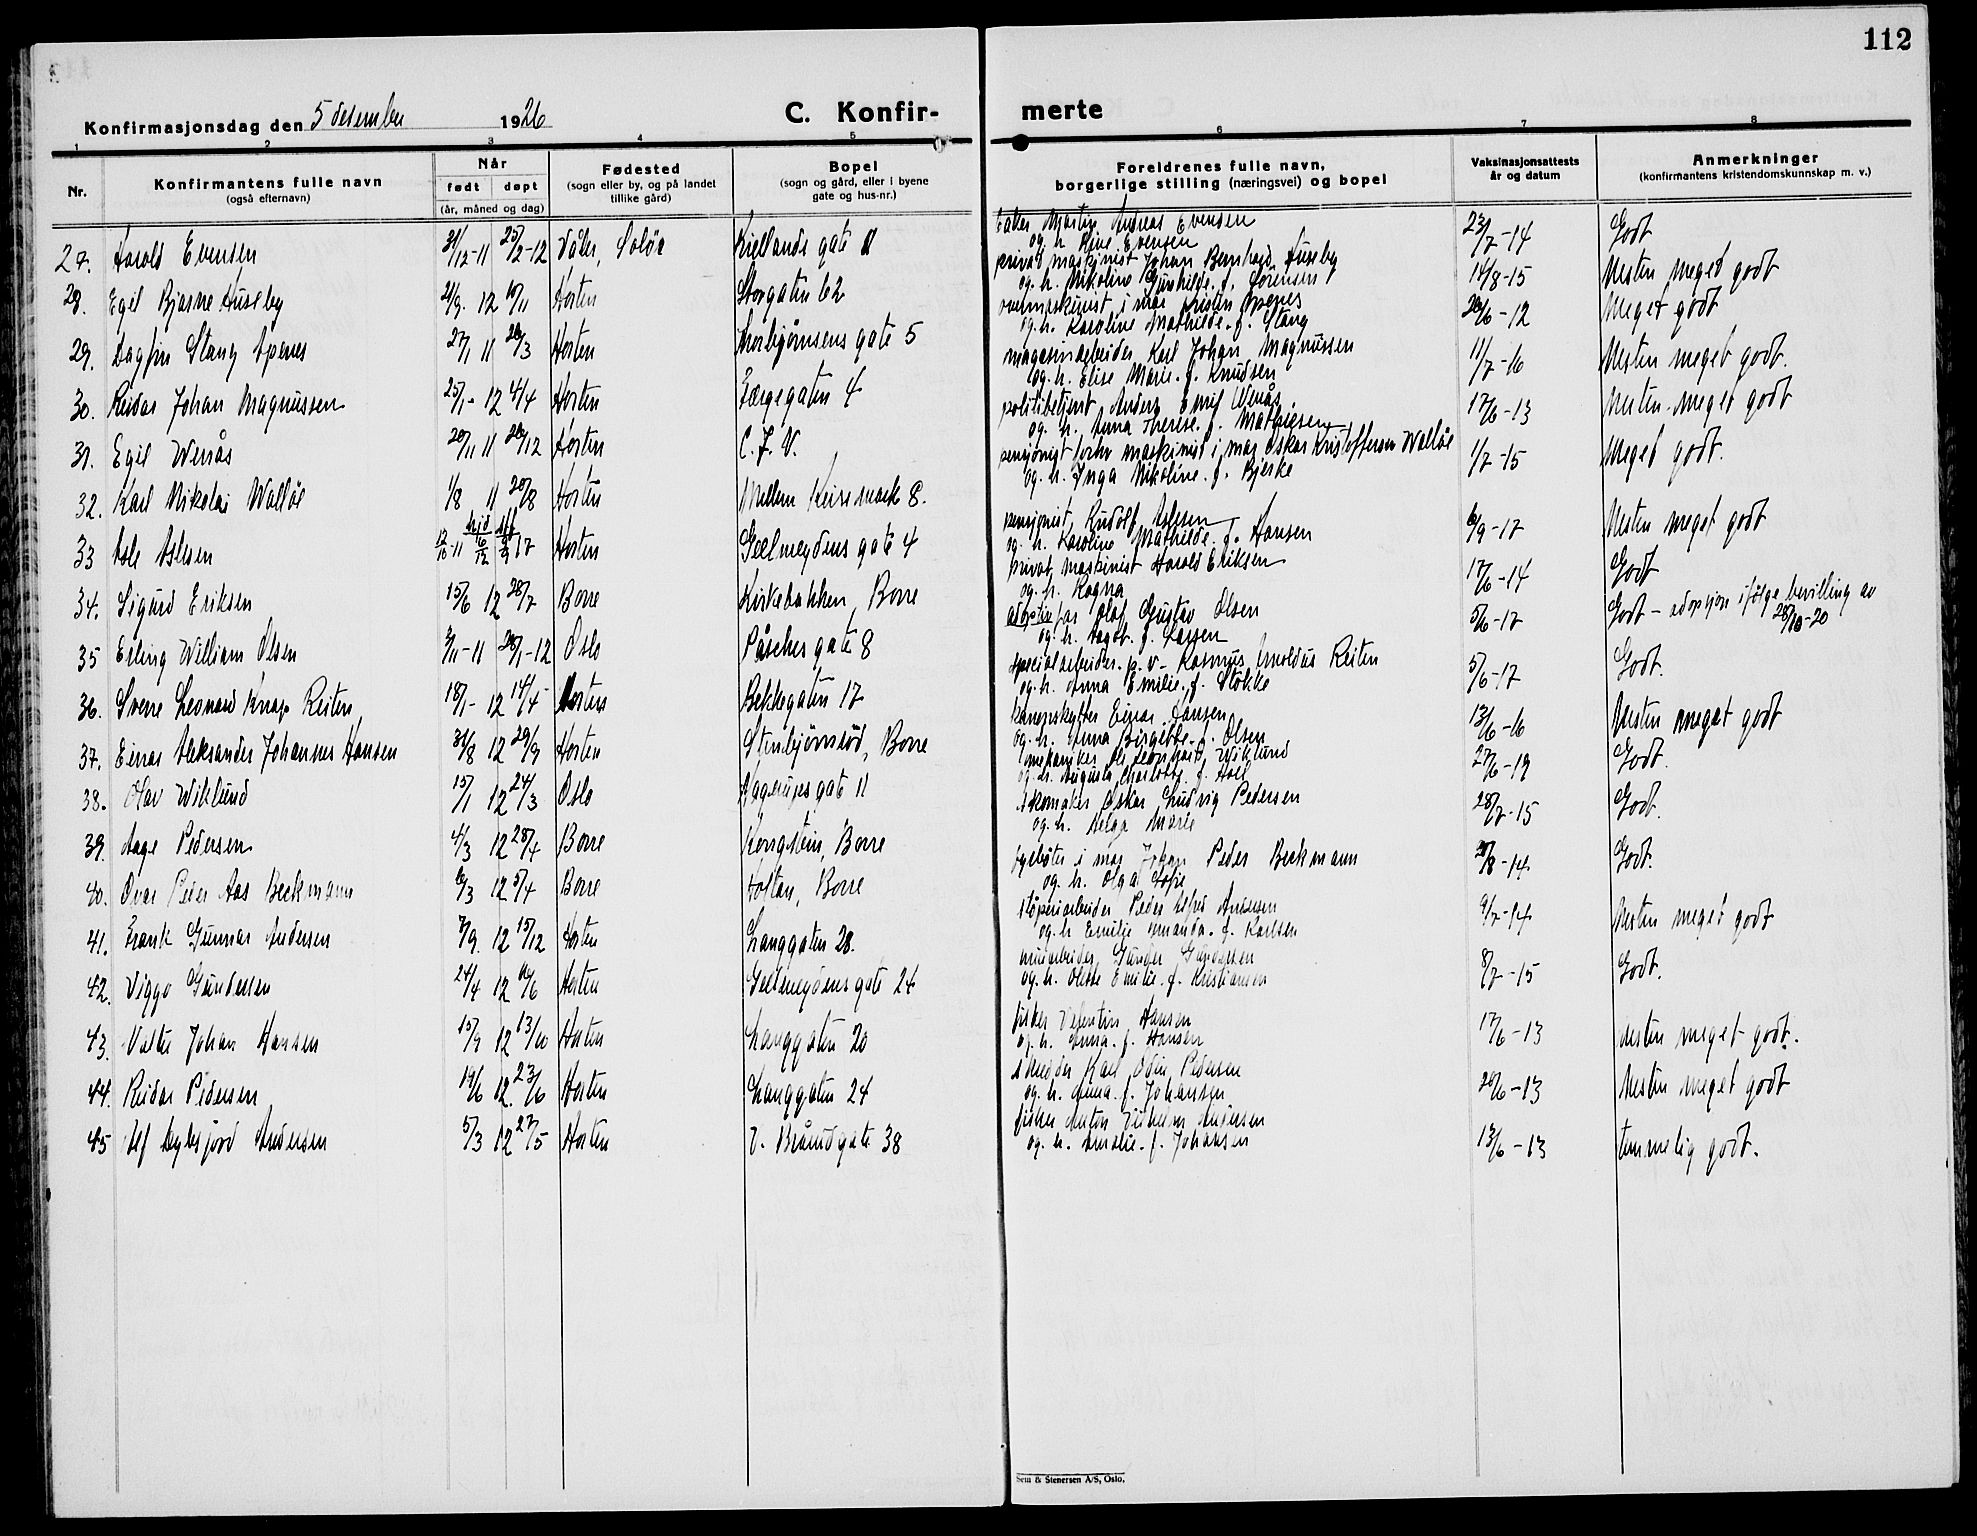 112
Konfirmasjonsdag den 5 desember 1926
C. Konfir-
merte
1 2 3 4 5 6 7 8
Nr.
Konfirmantens fulle navn
(også efternavn)
Når
født døpt
(år, måned og dag)
Fødested
(sogn eller by, og på landet
tillike gård)
Bopel
(sogn og gård, eller i byene
gate og hus-nr.)
Foreldrenes fulle navn,
borgerlige stilling (næringsvei) og bopel
Vaksinasjonsattests
år og datum
Anmerkninger
(konfirmantens kristendomskunnskap m. v.)
27. Harald Evensen 31/12-11 25/2-12 Våler, Solør Kiellands gate 11
Martin Andreas Evensen
og h. Evensen 23/7-14 Godt
28. Egil Bjarne Huseby 21/9. 12 10/11 Horten Storgaten 62
privat maskinist Johan Bernhard Huseby
og h. Nikoline Gunhilde f. Sørensen 14/8-15 Nesten meget godt
29. Dagfin Stang Apenes 27/1 11 26/3 Horten Thorbjørnsens gate 5
Apenes
og h. Karoline Mathilde f. Stang 26/6-12 Meget godt
30. Reidar Johan Magnussen 25/1-12 4/4 Horten Færgegaten 4
magasinarbeider Karl Johan Magnussen
og h. Elise Marie f. Knudsen 11/7-16 Nesten meget godt.
31. Egil Wenås 20/11 11 26/12 Horten C.J.V.
politibetjent Anders Wenås
og h. Anna Therese f. Mathiesen 17/6-13 Nesten meget godt
32. Karl Nikolai Walløe 1/8 11 20/8 Horten Mellem Keisemark 8.
pensjonist forhv maskinist i mar Oskar Kristofferson Walløe
og h. Inga Nikoline f. Bjerke 1/7-15 Meget godt.
33 Aslesen 12/10-11 17 Horten Geelmeydens gate 4
pensjonist Rudolf Aslesen
og h. Karoline Mathilde f. Hansen 6/9-17 Nesten meget godt
34. Sigurd Eriksen 15/6 12 28/7 Borre Kirkebakken, Borre
privat maskinist Harald Eriksen
og h. Ragna 17/6-14 Godt
35 Erling William Olsen 3/11-11 28/1-12 Oslo Påsches gate 8
adoptivfar Olaf Gustav Olsen
og h. Dagot f. Larsen 5/6-17 Godt - adopsjon ifølge bevilling av
28/10-20
36. Sverre Leonard Knap Reiten 18/1-12 14/4 Horten Bekkegaten 17
spesialarbeider p.v- Rasmus Arnoldus Reiten
og h. Anna Emilie f. Stokke 5/6-17 Godt.
37. Einar Aleksander Johannes Hansen 31/8 12 29/9 Horten Stenbjørnsrød, Borre
kanonskytter Einar Hansen
og h. Anna Birgitte f. Olsen 13/6-16 Nesten meget godt
38. Olav Wiklund 15/1 12 24/3 Oslo Aagerups gate 11
mekaniker Wiklund
og h. Augusta Charlotte f. 27/6-19 Godt.
39. Aage Pedersen 4/3 12 28/4 Borre Kongstein, Borre
skomaker Oskar Ludvig Pedersen
og h. Helga Marie 28/7-15 Godt.
40. Peder Aas Beckmann 6/3 12 5/4 Borre Holtan, Borre
i mar Johan Peder Beckmann
og h. Olga Sofie 20/8-14 Godt.
41. Frank Gunnar Andersen 7/9. 12 15/12 Horten Langgaten 28.
støperiarbeider Peder Andersen
og h Emilie Amanda f. Karlsen 9/7-14 Nesten meget godt
42. Viggo Gundersen 24/4 12 16/6 Horten Geelmeydens gate 24
minarbeider Gunder Gundersen
og h. Emilie f. Kristiansen 8/7-15 Godt.
43. Valter Johan Hansen 15/9 12 13/10 Horten Langgaten 20
fisker Valentin Hansen
og h. Anna f. Hansen 17/6-13 Nesten meget godt.
44. Reidar Pedersen 14/6 12. 23/6 Horten Langgaten 24
Karl Odin Pedersen
og h. Anna f. Johansen 20/6-13 Nesten meget godt
45 Andersen 5/3 12 27/5 Horten V. Brårudgate 38
fisker Anton Vilhelm Andersen
og h. Amalie f. Johansen 13/6-13 temmelig godt.
Sem & Stenersen A/S, Oslo.